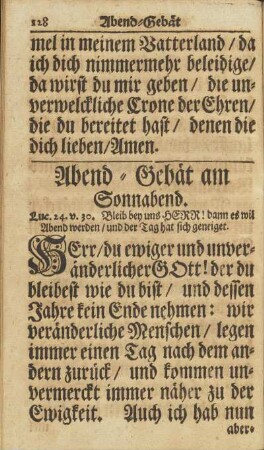 128 Abend-Gebät
mel in meinem Vatterland/ da
ich dich nimmermehr beleidige/
da wirst du mir geben/ die un-
verwelckliche Crone der Ehren/
die du bereitet hast/ denen die
dich lieben/ Amen.
Abend-Gebät am
Sonnabend.
Luc. 24. v. 30. Bleib bey uns HERR! dann es wil
Abend werden/ und der Tag hat sich geneiget.
HErr/ du ewiger und unver-
änderlicher GOtt! der du
bleibest wie du bist/ und dessen
Jahre kein Ende nehmen: wir
veränderliche Menschen/ legen
immer einen Tag nach dem an-
dern zurück/ und kommen un-
vermerckt immer näher zu der
Ewigkeit. Auch ich hab nun
aber-